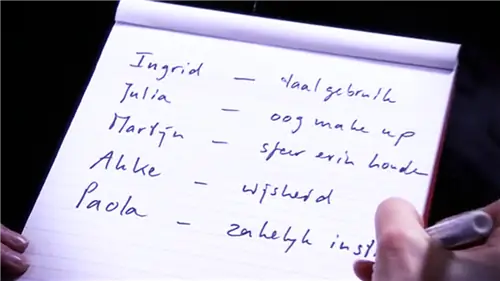 Ingrid – taalgebruik
Julia – oog make up
Martijn – sfeer erin houden
Ahke – wijsheid
Paola – zakelijk